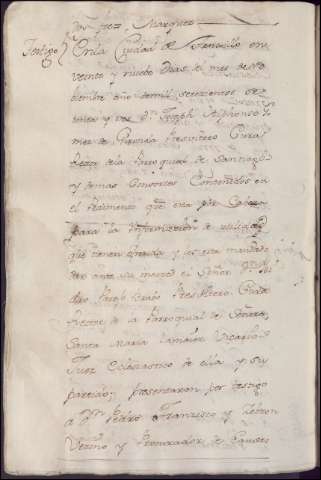 Marquez
Testigo) En la Ciudad de Truxillo en
veinte y nueve dias del mes de No
biembre año de mil setecientos se
tenta y tres Dn Joseph Alphonso
Presvitero Cura
Rector de la Parroquial de Santiago
y demas Consortes Contenidos en
el Pedimento que esta por Cabeza
para la Informazion de utilidad
que tienen dada y les esta manda
do ante su merced el Señor Dn
Presvitero Cura
Rector de la Parroquial de Señora
Santa Maria la maior Vicario
Juez Eclesiastico de ella y su
partido; presentaron por testigo
a Dn Pedro Francisco y
Vezino y Procurador de